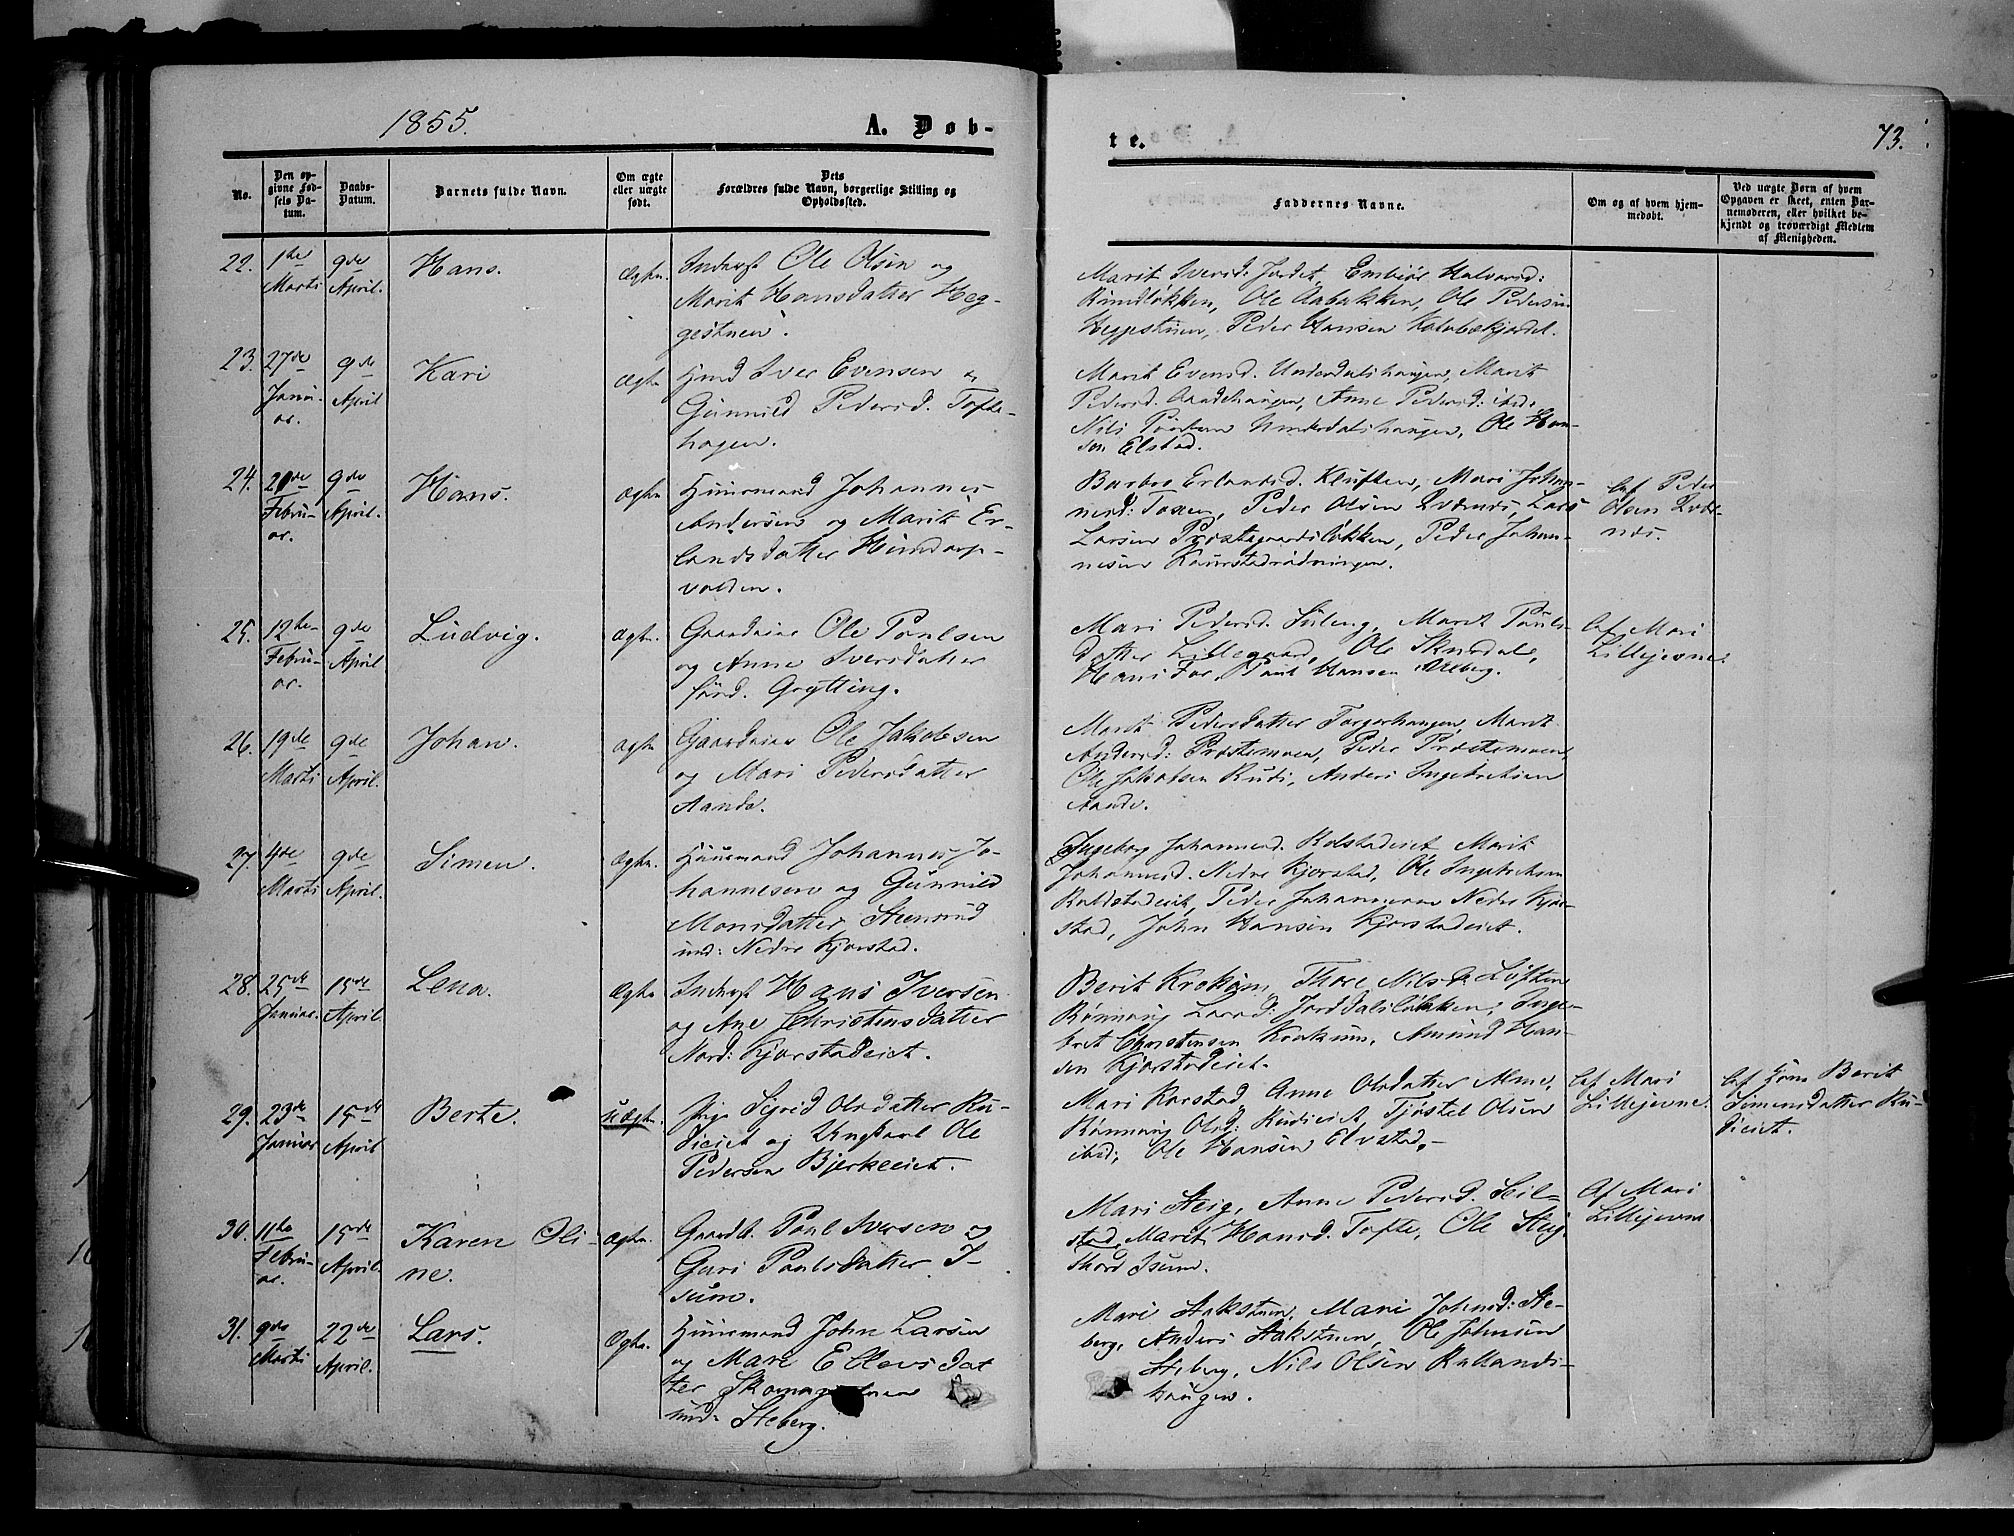 1855.
A. Døb-
te.
73.
No.
Den op-
givne Fød-
sels Da-
tum.
Daabs-
Datum.
Barnets fulde Navn.
Om ægte
eller uægte
født.
Dets
Forældres fulde Navn, borgerlige Stilling og
Opholdssted.
Faddernes Navne.
Om og af hvem hjem-
medøbt.
Ved uægte Børn af hvem
Opgaven er skeet, enten Bar-
nemoderen, eller hvilket be-
kjendt og troværdigt Medlem
af Menigheden.
22. 1ste Marts
9de April.
Hans.
Ægte.
Inderst Ole Olsen og
Marit Hansdatter Heg-
gestuen.
Marit Iversd. Jordet, Embiør Halvorsd:
Rundløkken, Ole Aabakken, Ole Pedersen
Heggestuen, Peder Hansen
23. 27de Janu-
ar.
9de April
Kari
Ægte
Huusmd Iver Evensen &
Gunnild Pedersd. Tofte-
hagen.
Marit Evensd. Underdalshaugen, Marit
Pedersd. Aandehaugen, Anne Pedersd: ibid.
Nils Underdalshaugen, Ole Han-
sen Elstad.
24. 20de Febru-
ar.
9de April.
Hans.
Ægte
Huusmand Johannes
Andersen og Marit Er-
landsdatter Hundorp-
volden.
Barbro Erlandsd. Kluften, Mari Johan-
nesd: Toxen, Peder Olsen Lars
Larsen Præstegaardsløkken, Peder Johan-
nesen
Af Peder
Olsen
25. 12te Febru-
ar.
9de April
Ludvig.
Ægte.
Gaardeier Ole Poulsen
og Anne Iversdatter
Grytting.
Mari Pedersd. Marit Pouls-
datter Lillegaard, Ole
Hans Foss, Poul Hansen
Af Mari
Lillejevne.
26. 19de Marts
9de April.
Johan.
Ægte
Gaardeier Ole Jakobsen
og Mari Pedersdatter
Aande.
Marit Pedersdatter Torgerhaugen, Marit
Andersd: Præstemoen, Peder Præstemoen,
Ole Jakobsen Rudi, Anders Ingebretsen
Aande.
27. 4de Marts
9de April.
Simen.
Ægte.
Huusmand Johannes Jo-
hannesen og Gunnild
Monsdatter Steensrud
und: Nedre Kjorstad.
Ingeborg Johannesd. Kolstadeiet Marit
Johannesd. Nedre Kjorstad, Ole Ingebretsen
Kolstadeiet, Peder Johannesen Nedre Kjor-
stad, John Hansen Kjorstadeiet.
28. 25de Januar.
15de April.
Lena.
Ægte
Inderst Hans Iversen
og Ane Christensdatter
Nord: Kjorstadeiet.
Berit Krokum, Thore Løften
Rønnaug Larsd: Jorddalsløkken, Inge-
bret Christensen Krokum, Amund Han-
sen Kjorstadeiet.
29. 23de Januar
15de April
Berte.
uægte.
Pige Sigrid Olsdatter Ru-
dieiet og Ungkarl Ole
Pedersen Bjerkeeiet.
Mari Korstad, Anne Olsdatter Alme,
Rønnaug Olsd: Rudieiet, Tjøstel Olsen
ibid; Ole Hansen Elvstad.
Af Mari
Lillejevne.
Af Berit
Simensdatter Ru-
dieiet.
30. 11te Febru-
ar.
15de April.
Karen Oli-
ne.
Ægte.
Gaardb. Poul Iversen og
Guri Poulsdatter I-
sum.
Mari Steig, Anne Pedersd. Seil-
stad, Marit Hansd. Tofte, Ole Steig
Thord Isum.
Af Mari
Lillejevne
31. 9de Marts
22de April.
Lars.
Ægte.
Huusmand John Larsen
og Mari Ellevsdat-
ter
und: Steberg.
Mari Stakstuen, Mari Johnsd: Ste-
berg, Anders Stakstuen, Ole Johnsen
Steberg, Nils Olsen
haugen.